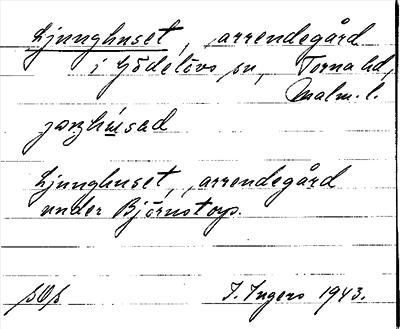 Ljunghuset, arrendegård
i Gödelövs sn, Torna hd,
Malm. l.
Ljunghuset, arrendegård
under Björnstorp.
I. Ingers 1943.